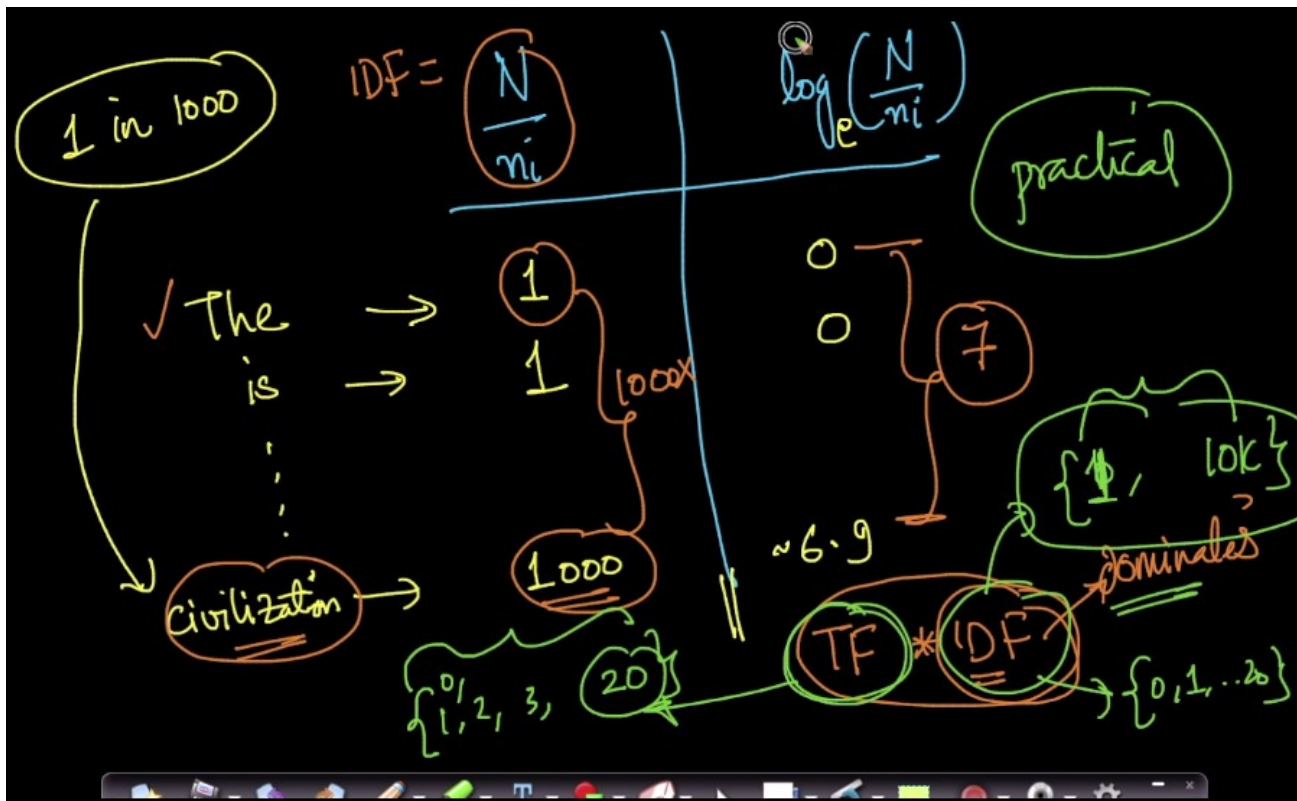 1 in 1000
IDF = N/ni
log e (N/ni)
practical
✓ The → 1
0
is → 1
0
1000X
7
{1, 10K}
civilization → 1000
~6.9
dominates
TF * IDF
{0, 1, 2, 3, 20}
{0, 1, ..20}